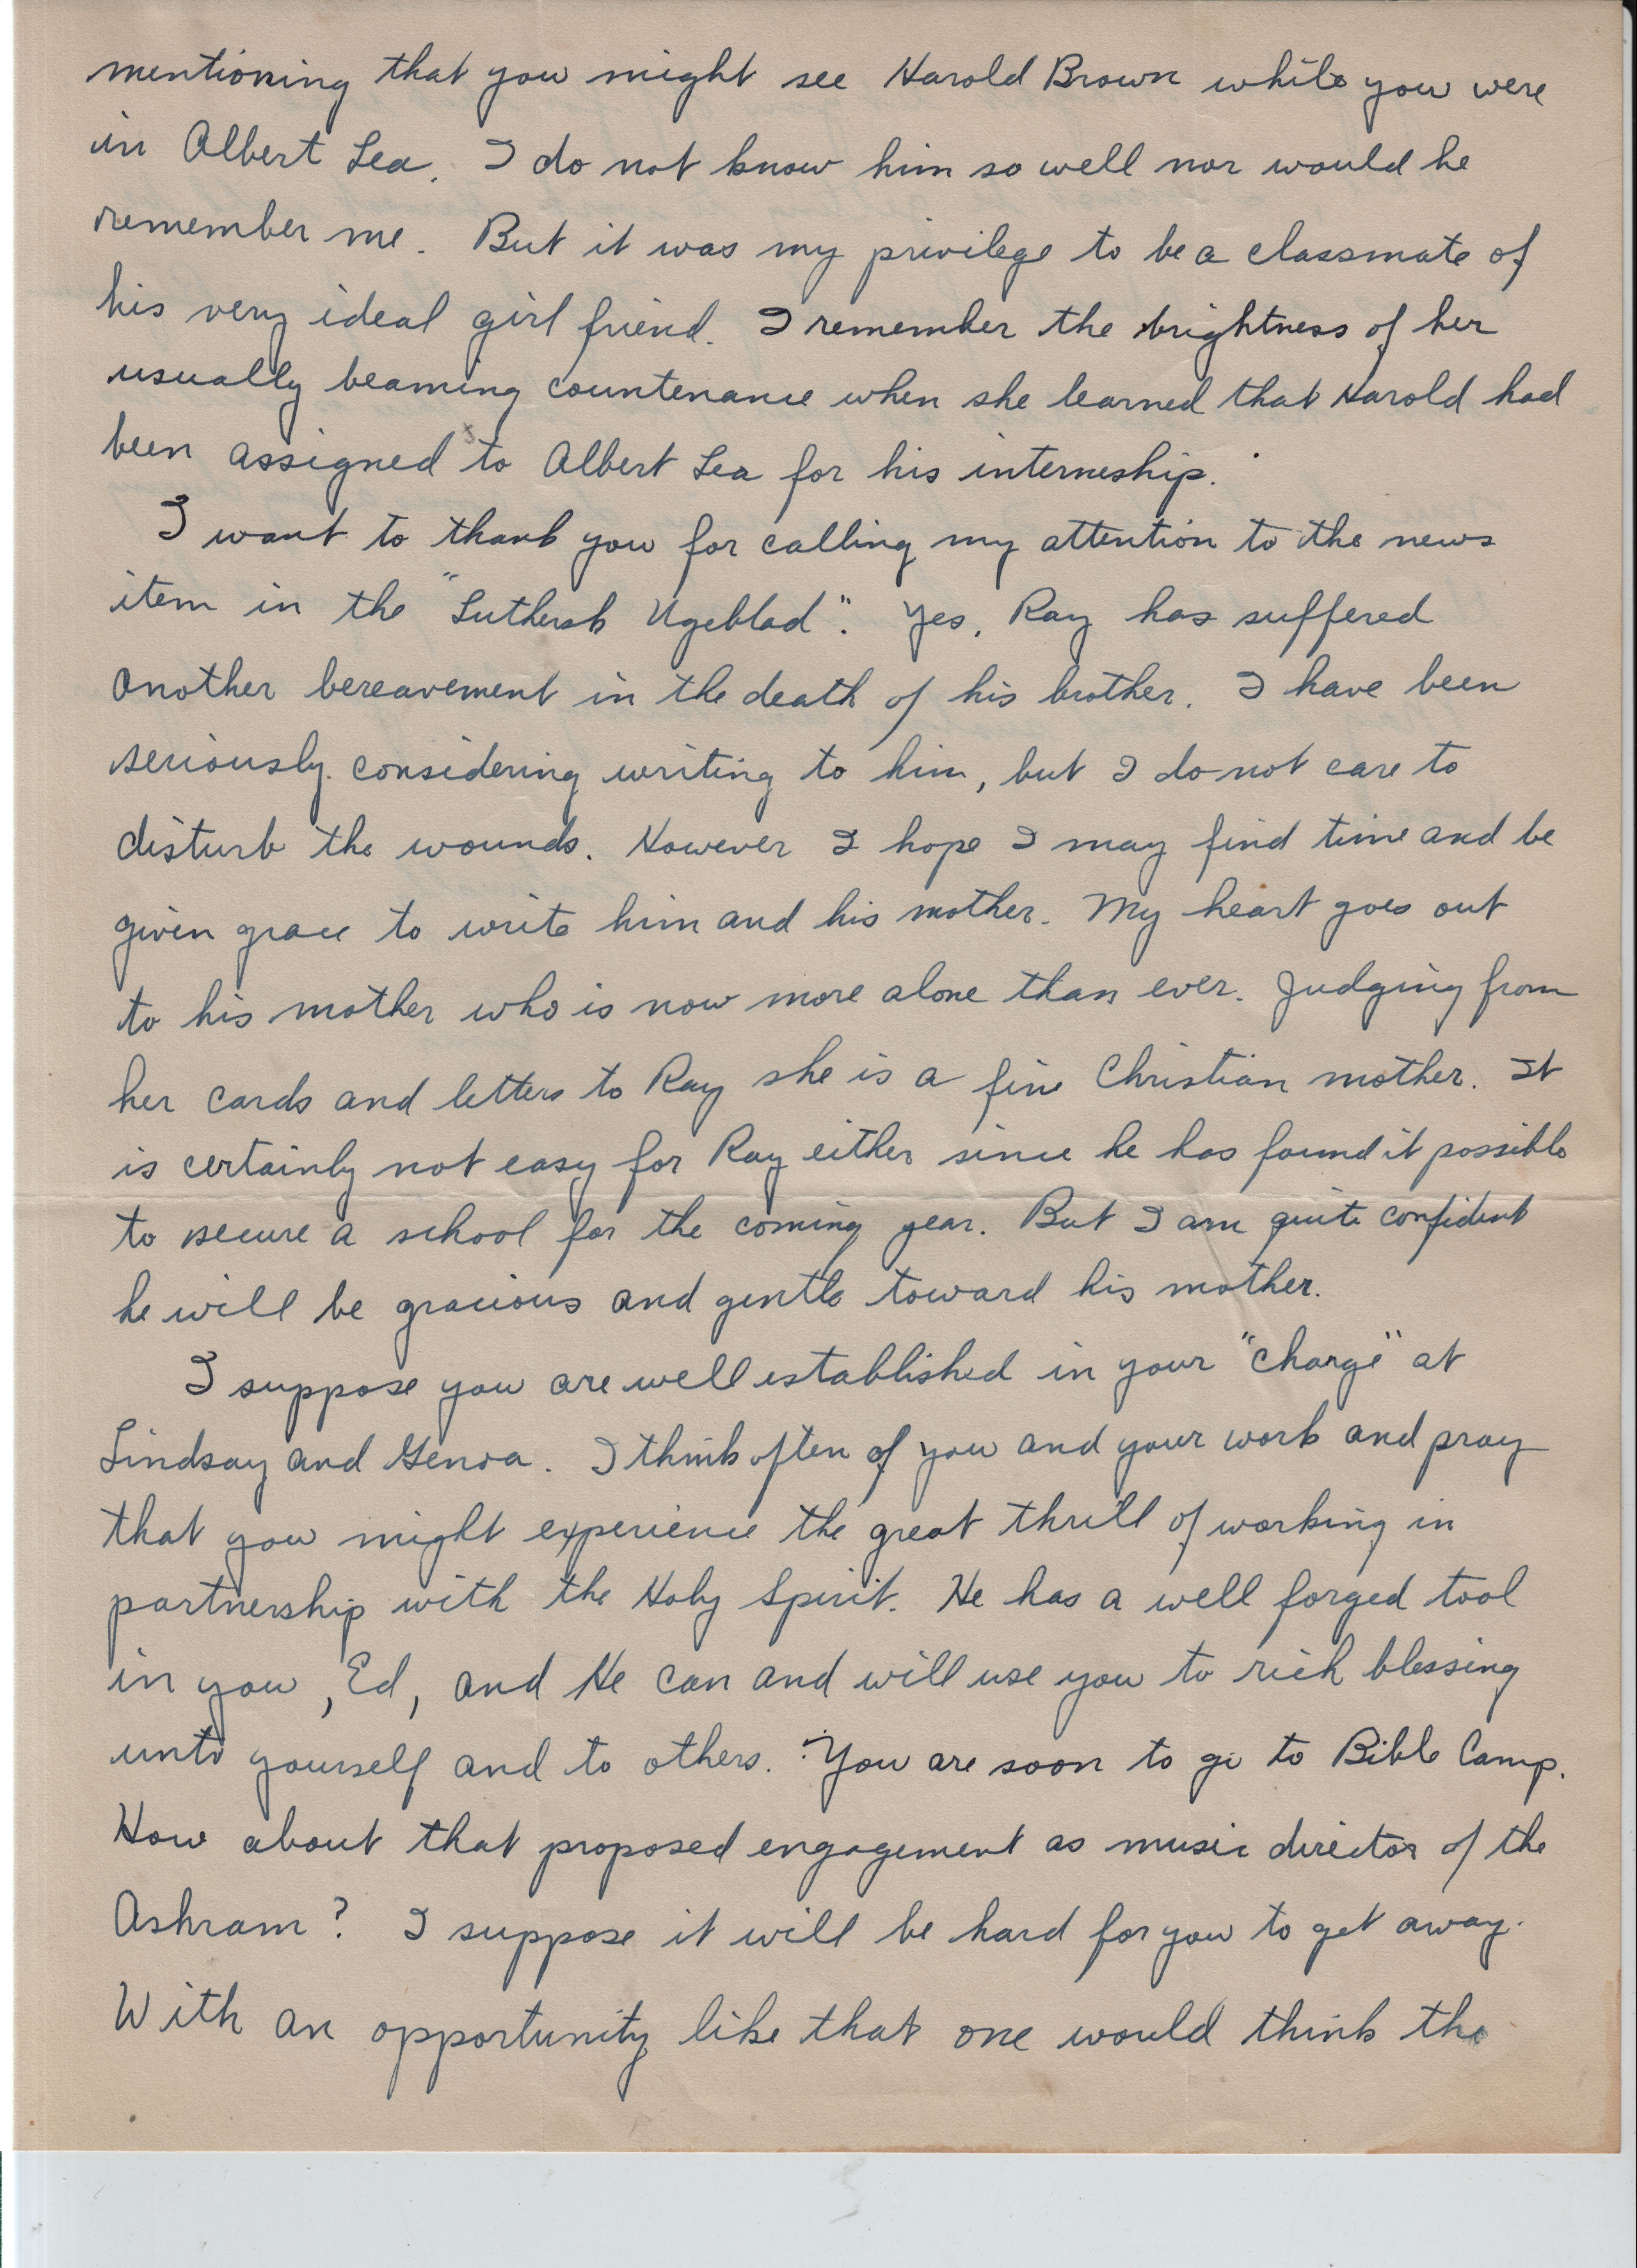 mentioning that you might see Harold Brown while you were
in Albert Lea. I do not know him so well nor would he
remember me. But it was my privilege to be a classmate of
his very ideal girl friend. I remember the brightness of her
usually beaming countenance when she learned that Harold had
been assigned to Albert Lea for his interneship.
I want to thank you for calling my attention to the news
item in the "Luthersk Ugeblad". Yes, Ray has suffered
another bereavement in the death of his brother. I have been
seriously considering writing to him, but I do not care to
disturb the wounds. However I hope I may find time and be
given grace to write him and his mother. My heart goes out
to his mother who is now more alone than ever. Judging from
her cards and letters to Ray she is a fine Christian mother. It
is certainly not easy for Ray either since he has found it possible
to secure a school for the coming year. But I am quite confident
he will be gracious and gentle toward his mother.
I suppose you are well established in your "charge" at
Lindsay and Genoa. I think often of you and your work and pray
that you might experience the great thrill of working in
partnership with the Holy Spirit. He has a well forged tool
in you, Ed, and He can and will use you to rich blessing
unto yourself and to others. You are soon to go to Bible Camp.
How about that proposed engagement as music director of the
Ashram? I suppose it will be hard for you to get away.
With an opportunity like that one would think the